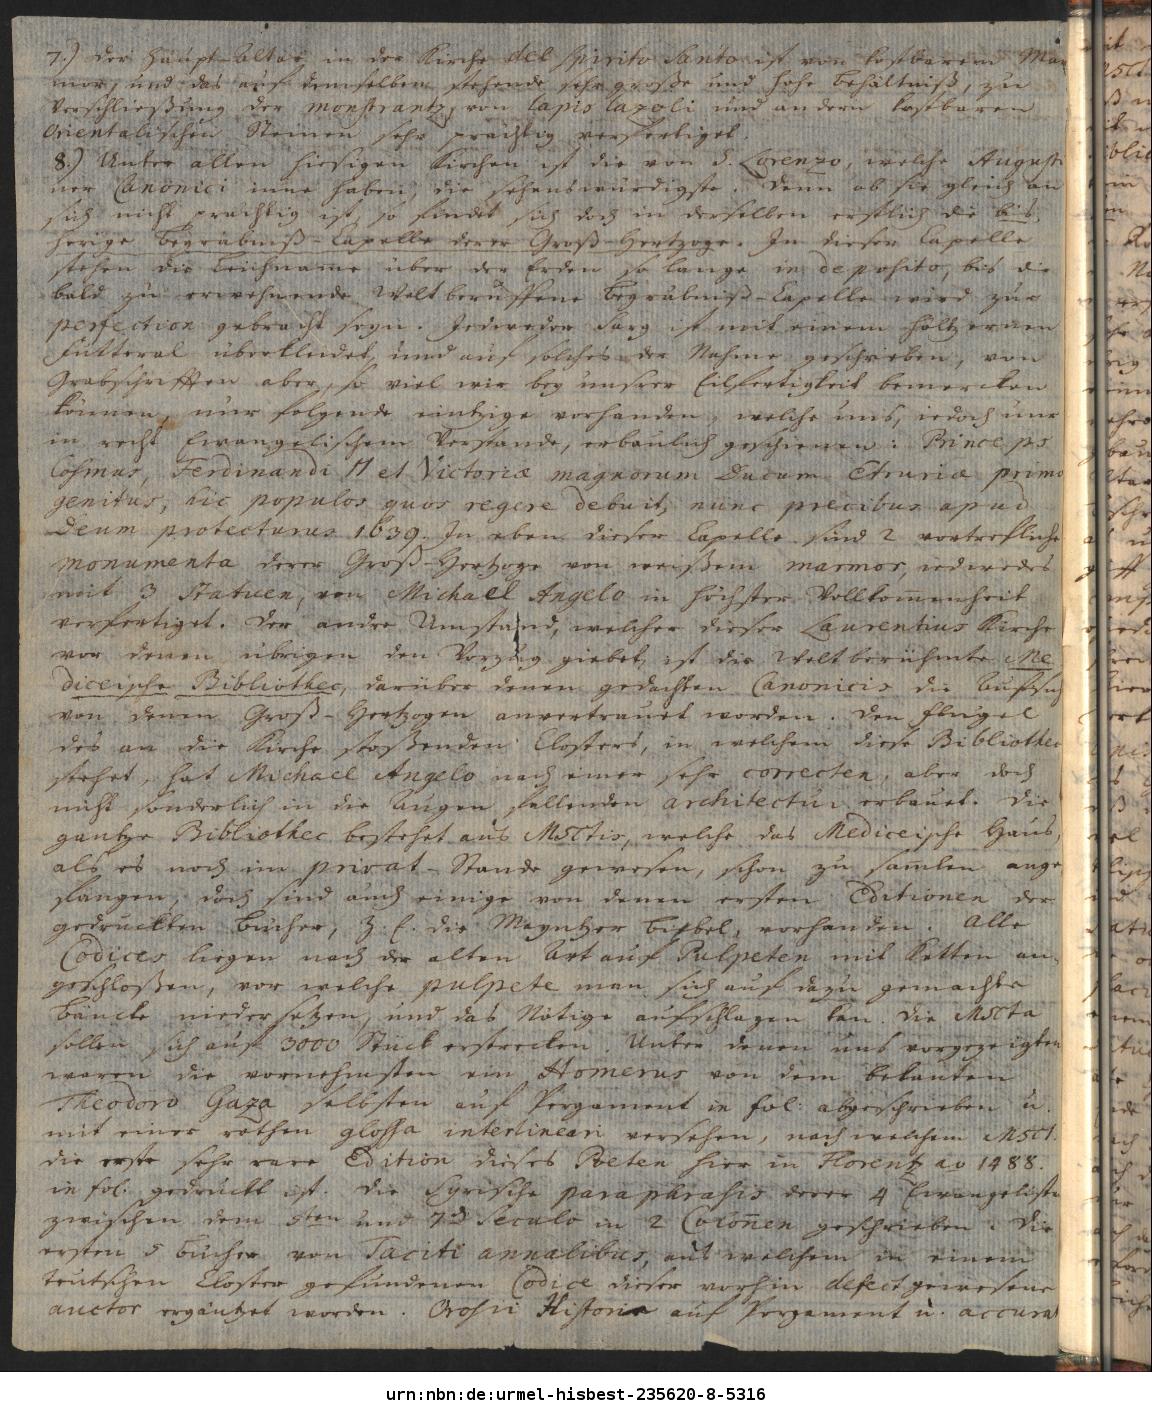 7.) Der Haupt-Altar in der Kirche del Spirito Santo ist von kostbarem Mar
mor, und das auf demselben stehende sehr große und hohe Behältniß, zu
Verschließung der monstrantz, von lapis lazoli und andern kostbaren
Orientalischen Steinen sehr prächtig verfertiget.
8.) Unter allen hiesigen Kirchen ist die von S. Lorenzo, welche Augusti
ner Canonici inne haben, die sehenswürdigste. Denn ob sie gleich an
sich nicht prächtig ist, so findet sich doch in derselben erstlich die bis
herige Begräbniß-Capelle derer Groß-Hertzoge. In dieser Capelle
stehen die Leichname über der Erden so lange in deposito, bis die
bald zu erwehnende Weltberuffene Begräbniß-Capelle wird zur
perfection gebracht seyn. Jedweder Sarg ist mit einem höltzernen
Futteral überkleidet, und auf solches der Nahme geschrieben, von
Grabschrifften aber, so viel wir bey unsrer Eilfertigkeit bemercken
können, nur folgende eintzige vorhanden, welche uns, iedoch nur
in recht Evangelischem Verstande, erbaulich geschienen: Princeps
Cosmus, Ferdinandi II et Victoriæ magnorum Ducum Etruriæ primo
genitus, hic populos quos regere debuit, nunc precibus apud
Deum protecturus 1639. In eben dieser Capelle sind 2 vortrefliche
monumenta derer Groß-Hertzoge von weißem marmor, iedwedes
mit 3 Statuen, von Michael Angelo in höchster Vollkommenheit
verfertiget. Der andre Umstand, welcher dieser Laurentius Kirche
vor denen übrigen den Vorzug giebet, ist die Weltberühmte Me
diceische Bibliothec, darüber denen gedachten Canonicis die Aufsich
von denen Groß-Hertzogen anvertrauet worden. Den Flügel
des an die Kirche stoßenden Closters, in welchem diese Bibliothec
stehet, hat Michael Angelo nach einer sehr correcten, aber doch
nicht sonderlich in die Augen fallenden architectur erbauet. Die
gantze Bibliothec bestehet aus Msctis, welche das Mediceische Haus,
als es noch im privat-Stande gewesen, schon zu samlen ange
fangen, doch sind auch einige von denen ersten Editionen der
gedruckten Bücher, z. E. die Mayntzer Biebel, vorhanden. Alle
Codices liegen nach der alten Art auf Pulpeten mit Ketten an
geschloßen, vor welche pulpete man sich auf dazu gemachte
Bäncke niedersetzen, und das Nötige aufschlagen kan. Die Mscta
sollen sich auf 3000 Stück erstrecken. Unter denen uns vorgezeigten
waren die vornehmsten ein Homerus von dem bekanten
Theodoro Gaza selbsten auf Pergament in fol. abgeschrieben u.
mit einer rothen glossa interlineari versehen, nach welchem Msct.
die erste sehr rare Edition dieses Poeten hier in Florenz ao 1488.
in fol. gedruckt ist. Die Syrische paraphrasis derer 4 Evangelisten
zwischen dem 6ten und 7t Seculo in 2 Colonnen geschrieben. Die
ersten 5 Bücher von Taciti annalibus, aus welchem in einem
teutschen Closter gefundenen Codice dieser vorhin defect gewesene
auctor ergäntzet worden. Orosii Historia auf Pergament u. accurat
urn:nbn:de:urmel-hisbest-235620-8-5316